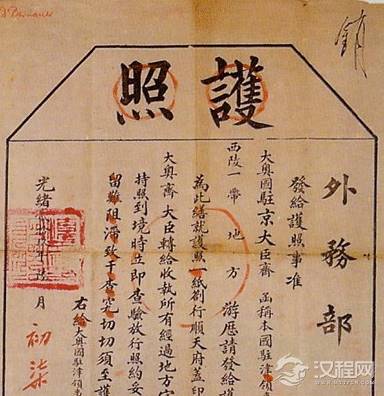 Bernauer
銷
護照
外務部
發給護照事准
大奧國駐京大臣齋 函稱本國駐津領事
西陵一帶地方 游歷請發給護
為此繕就護照一紙劄行順天府蓋印
大奧齋大臣轉給收執所有經過地方官
持照到境時立即查驗放行照約妥
留難阻滯致干查究切切須至護
右給大奧國駐津領事
光緒 月 初柒
汉程网